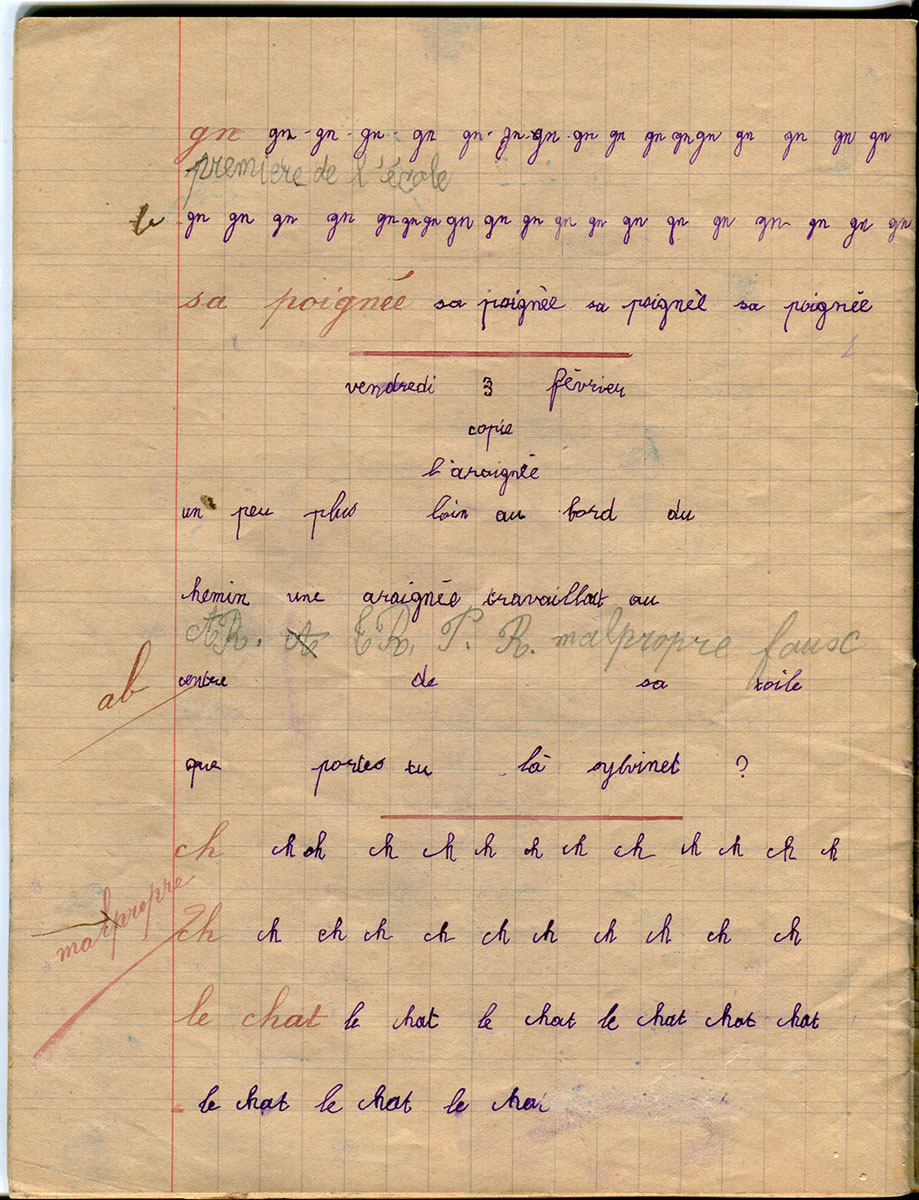 gn gn - gn - gn - gn gn - gn - gn - gn gn gn gn gn gn gn gn gn
première de l'école
le gn gn gn gn gn gn gn gn gn gn gn gn gn gn gn gn gn gn gn
sa poignée sa poignée sa poignée sa poignée
vendredi 3 février
copie
l'araignée
un peu plus loin au bord du
hemin une araignée travaillait au
AR. A ER. P. R. malpropre fausc
ab centre de sa toile
que portes tu là sylvinet ?
ch ch ch ch ch h ch ch ch ch ch ch h
malpropre
ch ch ch ch ch ch ch ch ch ch ch
le chat le chat le chat le chat chat chat
le chat le chat le chat